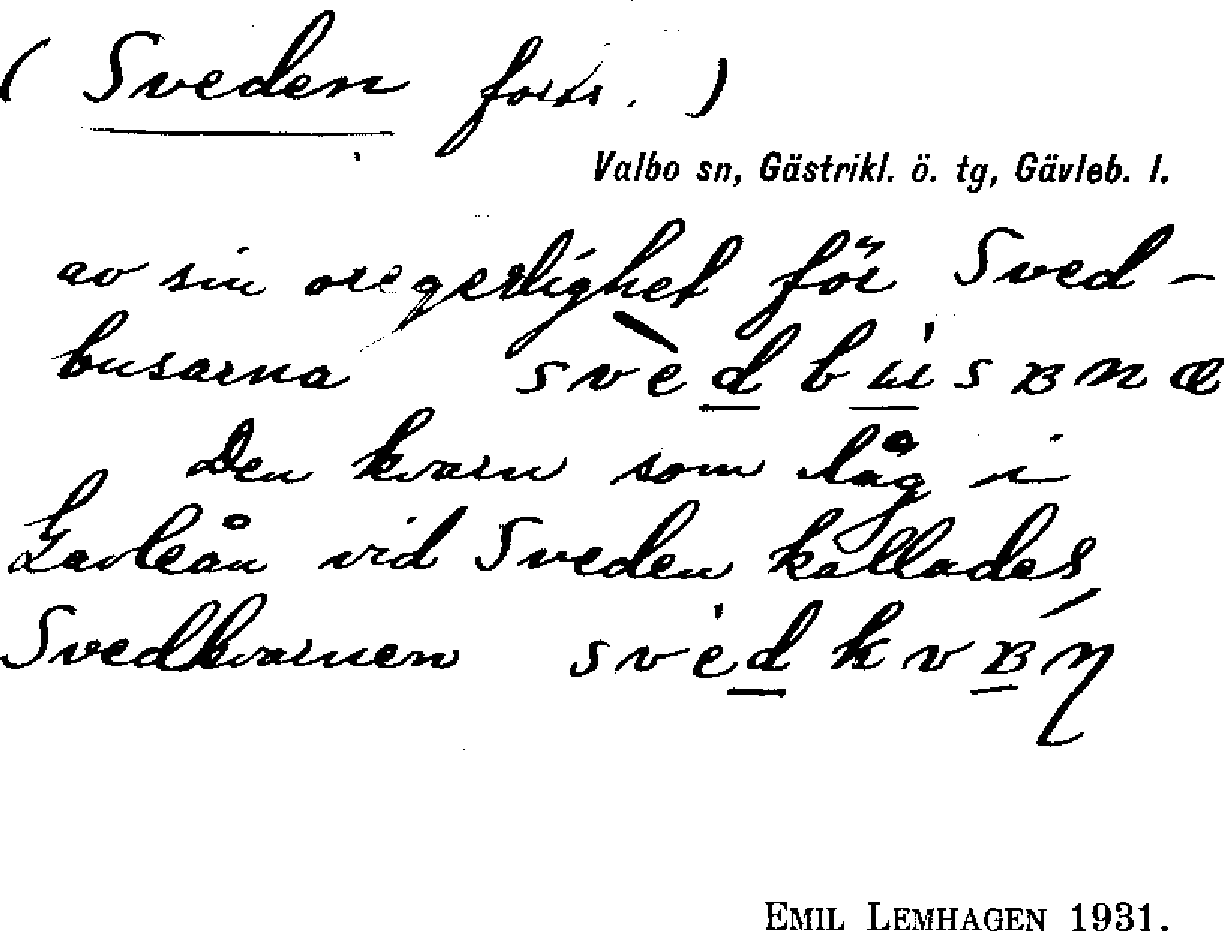 ( Sveden forts. )
Valbo sn, Gästrikl. ö. tg, Gävleb. l.
av sin oregerlighet för Sved-
busarna
Den kvarn som låg i
Gavleån vid Sveden kallades
Svedkvarnen
EMIL LEMHAGEN 1931.